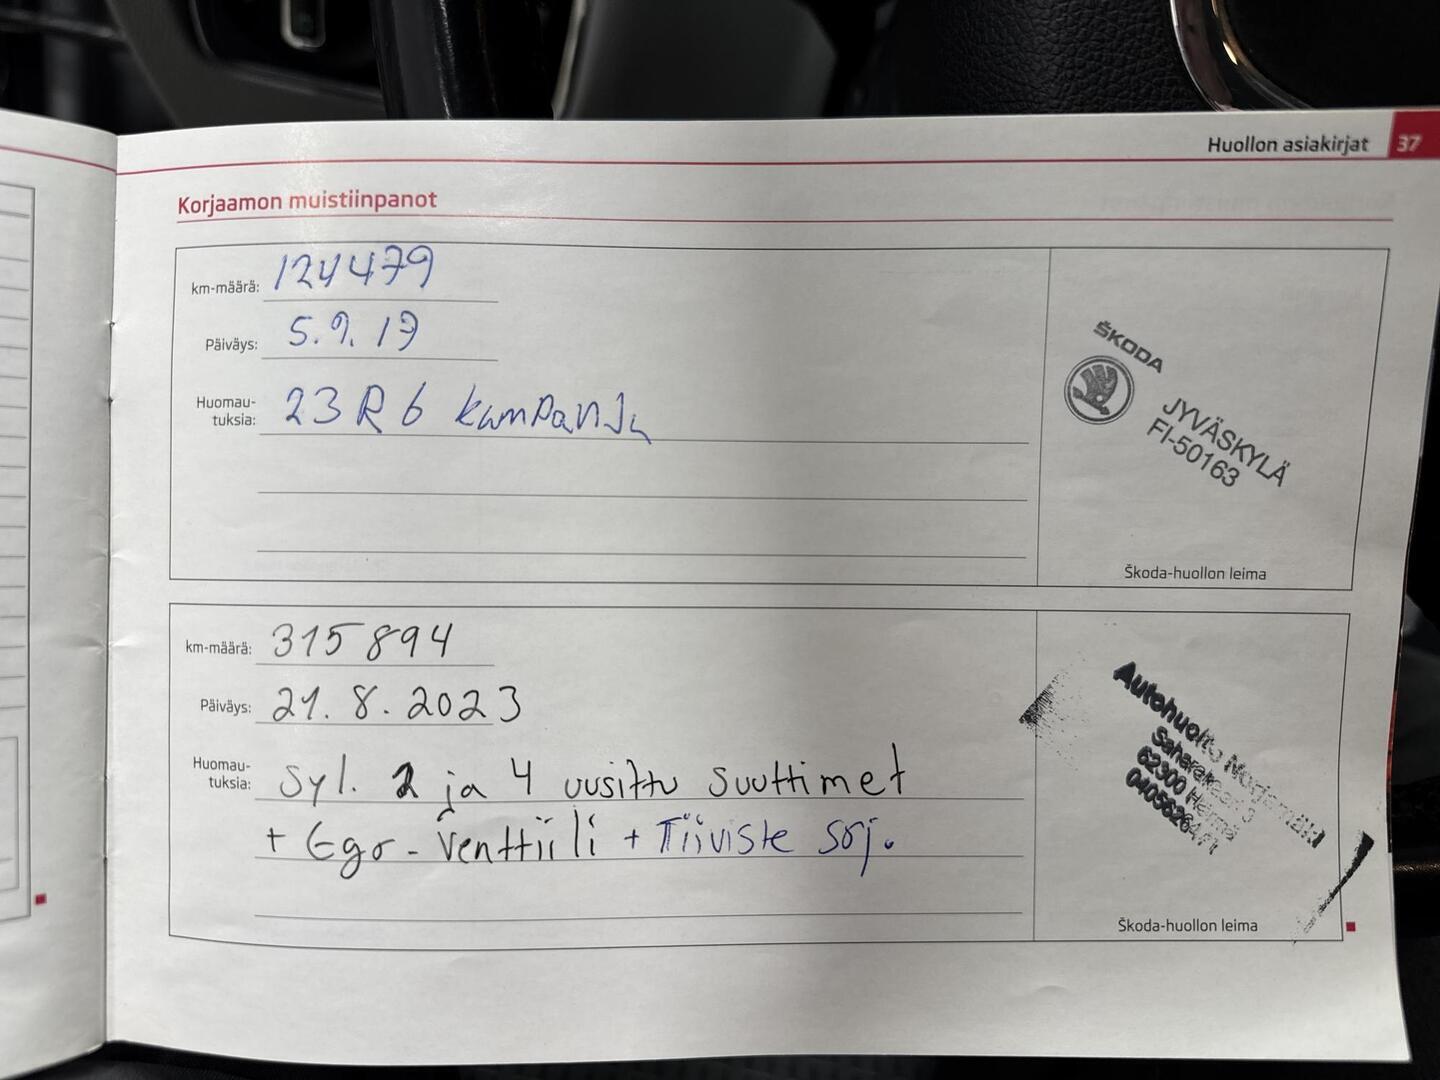 Huollon asiakirjat 37
Korjaamon muistiinpanot
km-määrä: 124479
Päiväys: 5.9.19
Huomau-
tuksia: 23R6 kampanja
ŠKODA
JYVÄSKYLÄ
FI-50163
Škoda-huollon leima
km-määrä: 315894
Päiväys: 21.8.2023
Huomau-
tuksia: syl. 2 ja 4 uusittu suuttimet
+ Egr-venttiili + Tiiviste srj.
Autohuolto Marjamäki
62300 Härmä
Škoda-huollon leima